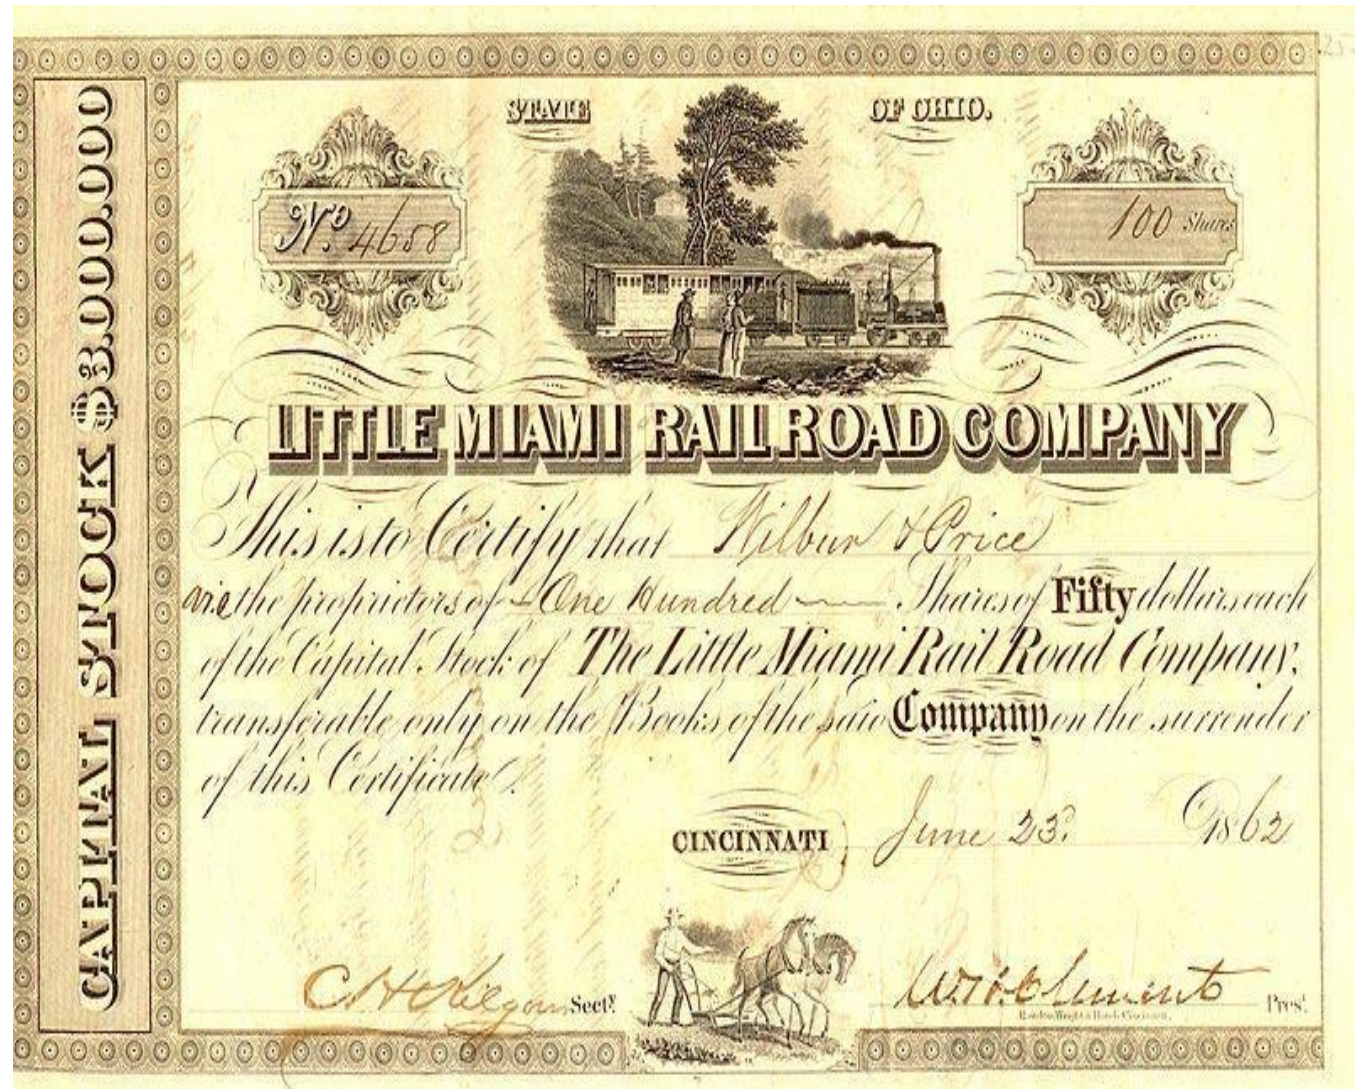 CAPITAL STOCK $3.000.000
STATE OF OHIO.
No 4658
100 Shares
LITTLE MIAMI RAILROAD COMPANY
This is to Certify that Wilbur & Price
are the proprietors of One Hundred Shares of Fifty dollars each
of the Capital Stock of The Little Miami Rail Road Company,
transferable only on the Books of the said Company on the surrender
of this Certificate.
CINCINNATI June 23. 1862
C H Kilgour Secty.
W. H. Clement Prest.